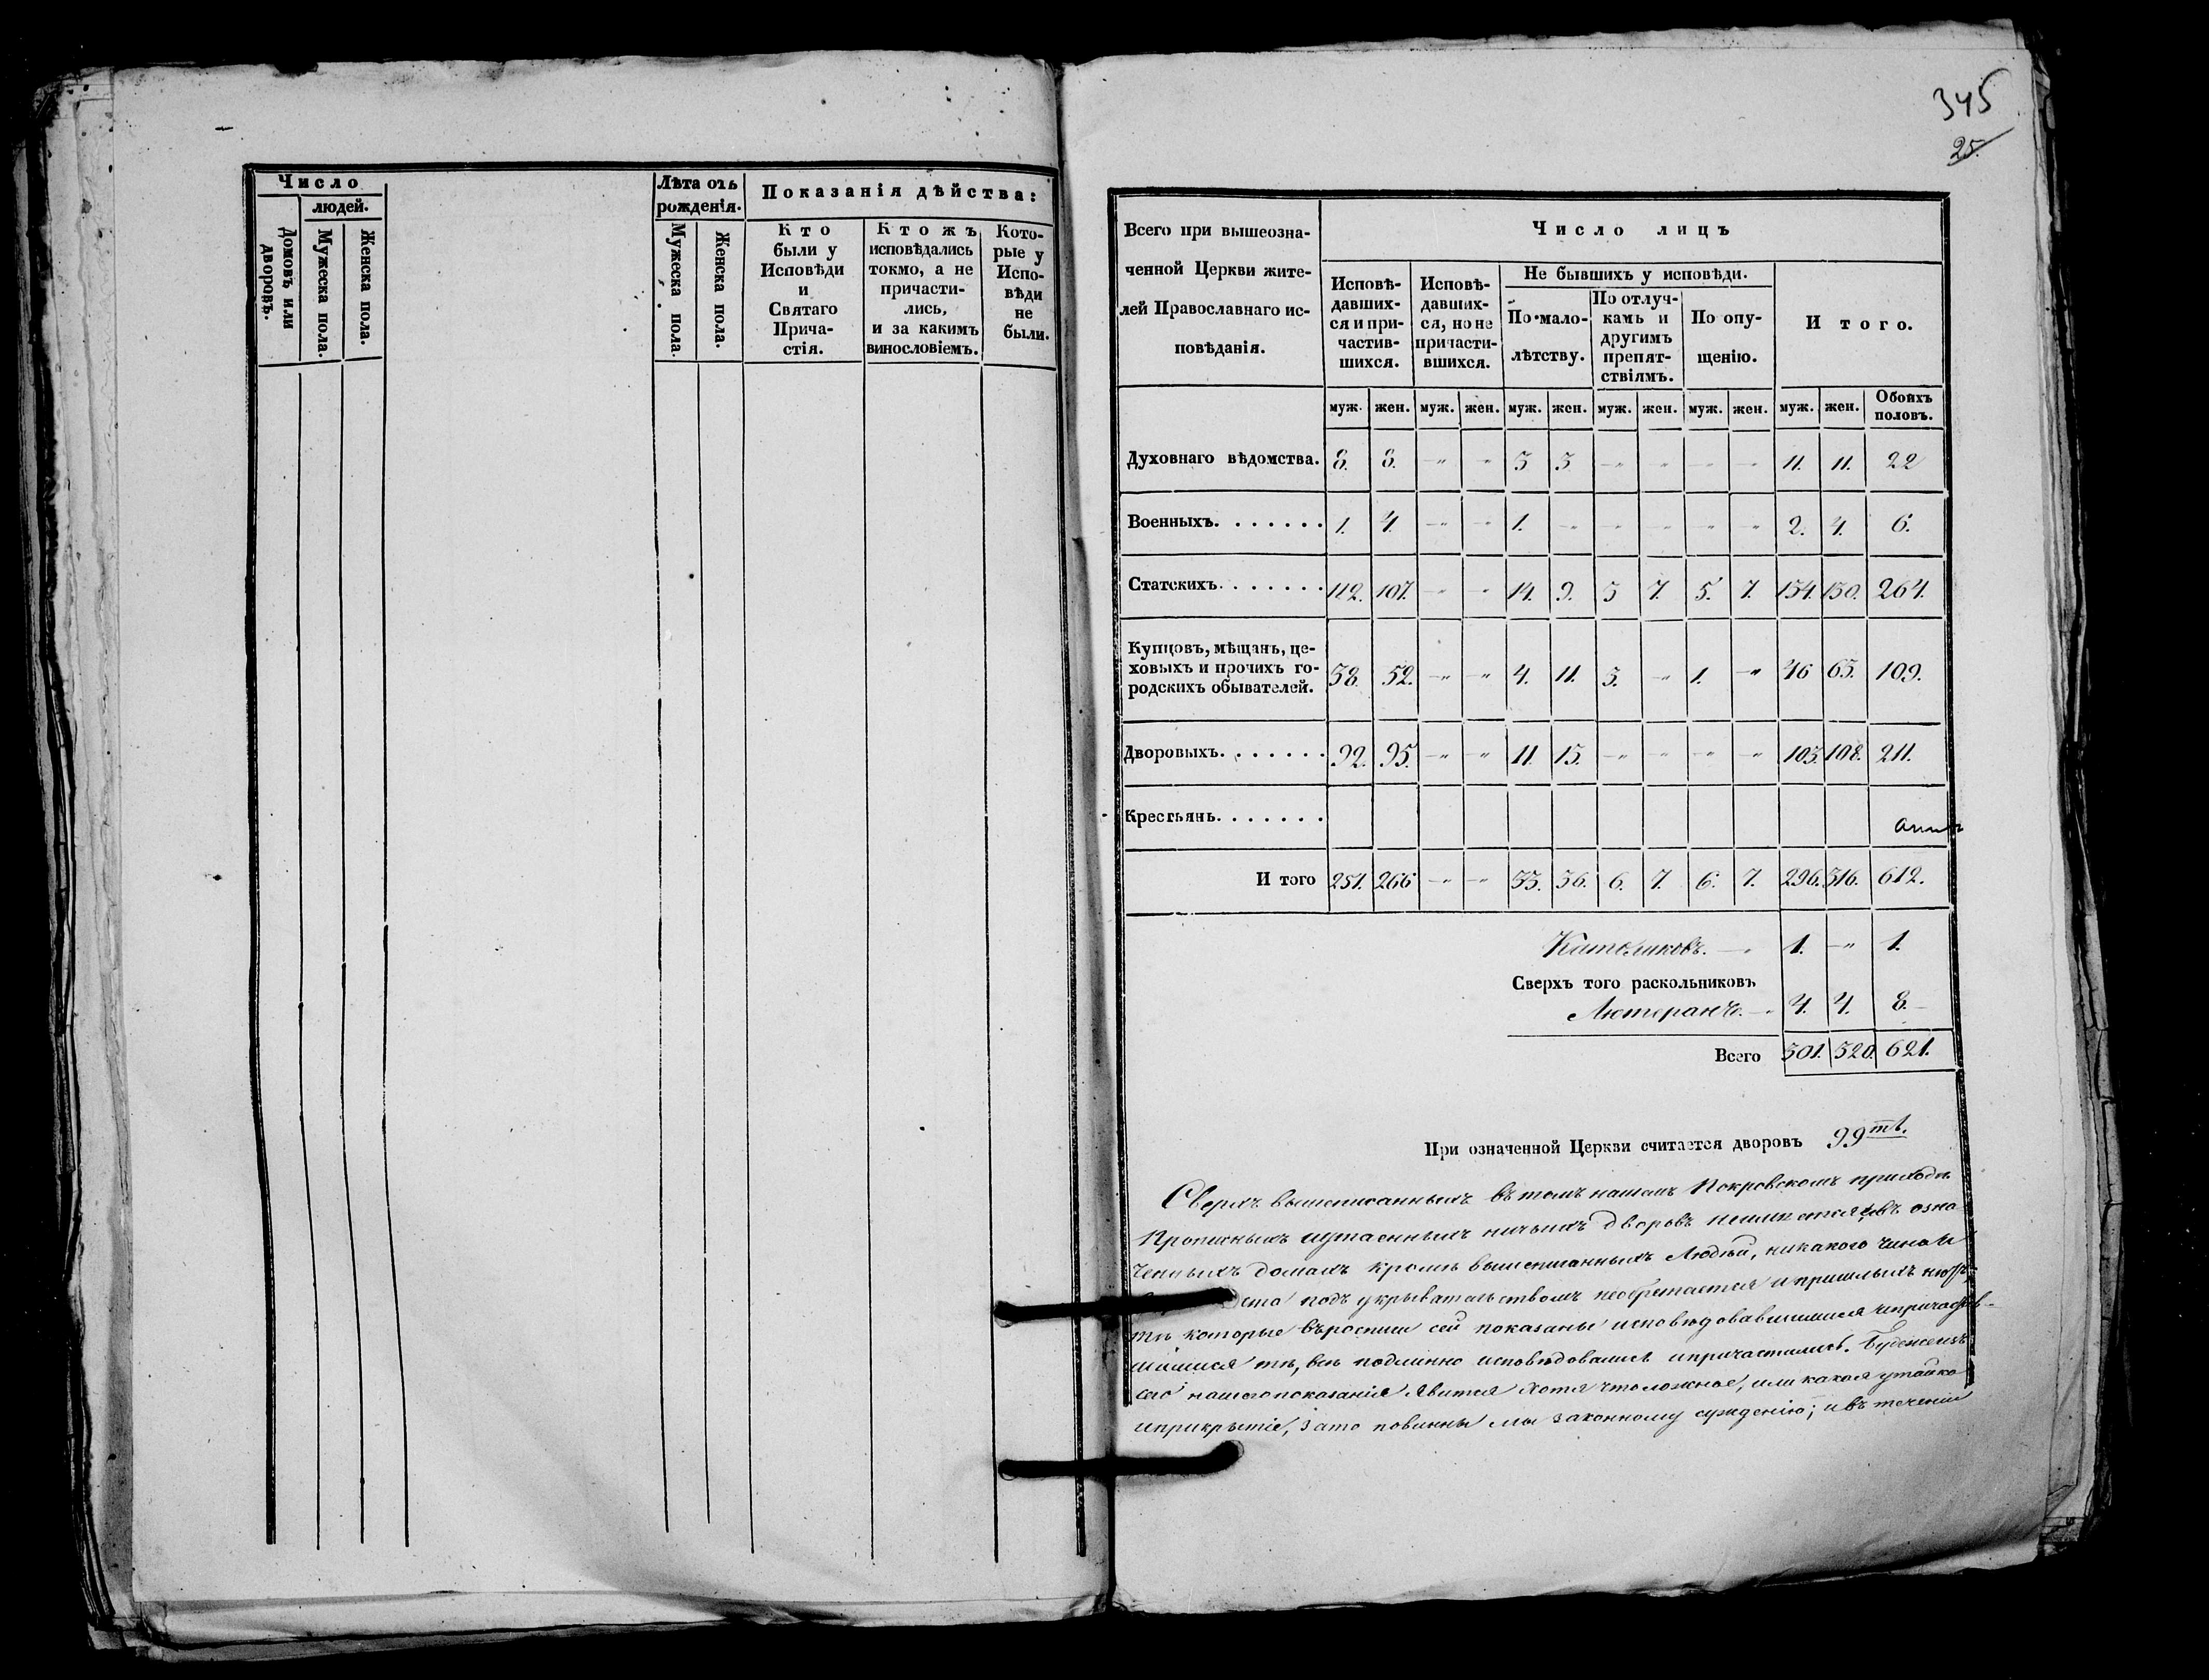 Число
людей.
Домовъ или дворовъ.
Мужеска пола.
Женска пола.
Лѣта отъ
рожденія.
Мужеска пола.
Женска пола.
Показанія дѣйства:
Кто
были у
Исповѣди
и
Святаго
Прича-
стія.
Ктожъ
исповѣдались
токмо, а не
причасти-
лись,
и за какимъ
винословіемъ.
Кото-
рые у
Испо-
вѣди
не
были.
345
25.
Всего при вышеозна-
ченной Церкви жите-
лей Православнаго ис-
повѣданія.
Число лицъ
Исповѣ-
давших-
ся и при-
частив-
шихся.
Исповѣ-
давших-
ся, но не
причасти-
вшихся.
Не бывшихъ у исповѣди.
По мало-
лѣтству.
По отлуч-
камъ и
другимъ
препят-
ствіямъ.
По опу-
щенію.
И того.
муж. жен. муж. жен. муж. жен. муж. жен. муж. жен. муж. жен. Обоихъ половъ.
Духовнаго вѣдомства. 8. 8. -„ -„ 3 3 -„ -„ -„ -„ 11. 11. 22
Военныхъ. . . . . . . 1. 4. -„ -„ 1. -„ -„ -„ -„ -„ 2. 4. 6.
Статскихъ. . . . . . . 112. 107. -„ -„ 14. 9. 3 7. 5. 7. 134. 130. 264.
Купцовъ, мѣщанъ, це-
ховыхъ и прочихъ го-
родскихъ обывателей. 38. 52. -„ -„ 4. 11. 3. -„ 1. -„ 46 63. 109.
Дворовыхъ. . . . . . . 92. 95. -„ -„ 11. 13. -„ -„ -„ -„ 103. 108. 211.
Крестьянъ. . . . . . .
И того 251. 266 -„ -„ 33. 36. 6. 7. 6. 7. 296. 316. 612.
Католиковъ. -„ 1. -„ 1.
Сверхъ того раскольниковъ
Лютеранъ. -„ 4. 4. 8.
Всего 301. 320. 621.
При означенной Церкви считается дворовъ 99ть.
Сверхъ вышеписанныхъ въ томъ нашемъ Покровскомъ приходѣ
прописныхъ иутаенныхъ ничьихъ дворовъ неимеется, ивъ озна-
ченныхъ домахъ кромѣ вышеписанныхъ людей, никакого чина и
подъ укрывательствомъ необретается ипришлыхъ
тѣ которые въросписи сей показаны исповѣдовавшимися ипричастив-
шимися тѣ, всѣ подлинно исповѣдовались ипричастились. Будежеизъ
сего нашегопоказанія явится хотя чтоложное, или какая утайка
иприкрытіе, зато повинны мы законному сужденію; ивъ теченіи